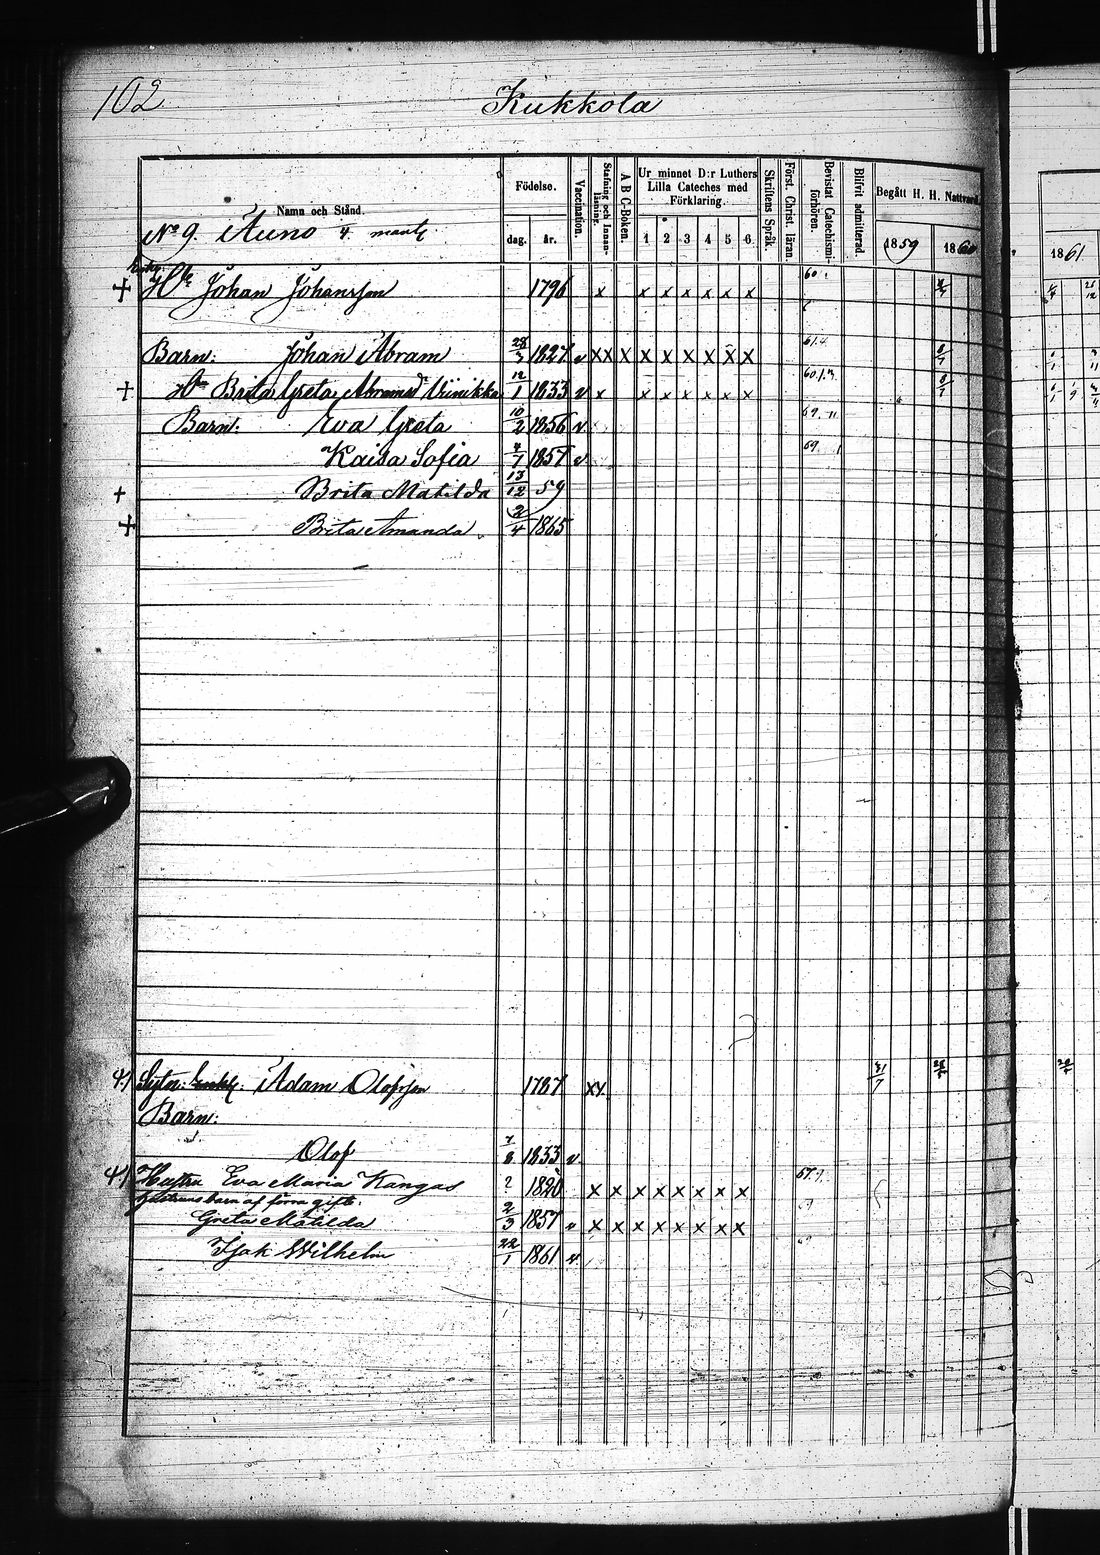 102
Kukkola
Namn och Stånd.
Födelse.
dag. år.
Vaccination.
Stafning och Innanläsning.
A B C-Boken.
Ur minnet D:r Luthers Lilla Cateches med Förklaring.
1 2 3 4 5 6
Skriftens Språk.
Först. Christ. läran.
Bevistat Catechismiförhören.
Blifvit admitterad.
Begått H. H. Nattvard.
1859 1860
1861
No 9. Auno
Johan Johansson 1796 x x x x x x x
Barn: Johan Abram 28/3 1827 v x x x x x x x x x
Brita Greta Abramsd Viinikka 12/1 1833 v x x x x x x x
Barn: Eva Greta 10/2 1856 v
Kaisa Sofia 1857 v
Brita Matilda 13/12 59
Brita Amanda 2/4 1865
Adam Olofsson 1787 xx
Barn:
Olof 7/8 1833 v
Hustru Eva Maria Kangas ? 1820 x x x x x x x x
Hustruns barn af förra gifte.
Greta Matilda 2/3 1857 v x x x x x x x x
Isak Wilhelm 22/1 1861 v